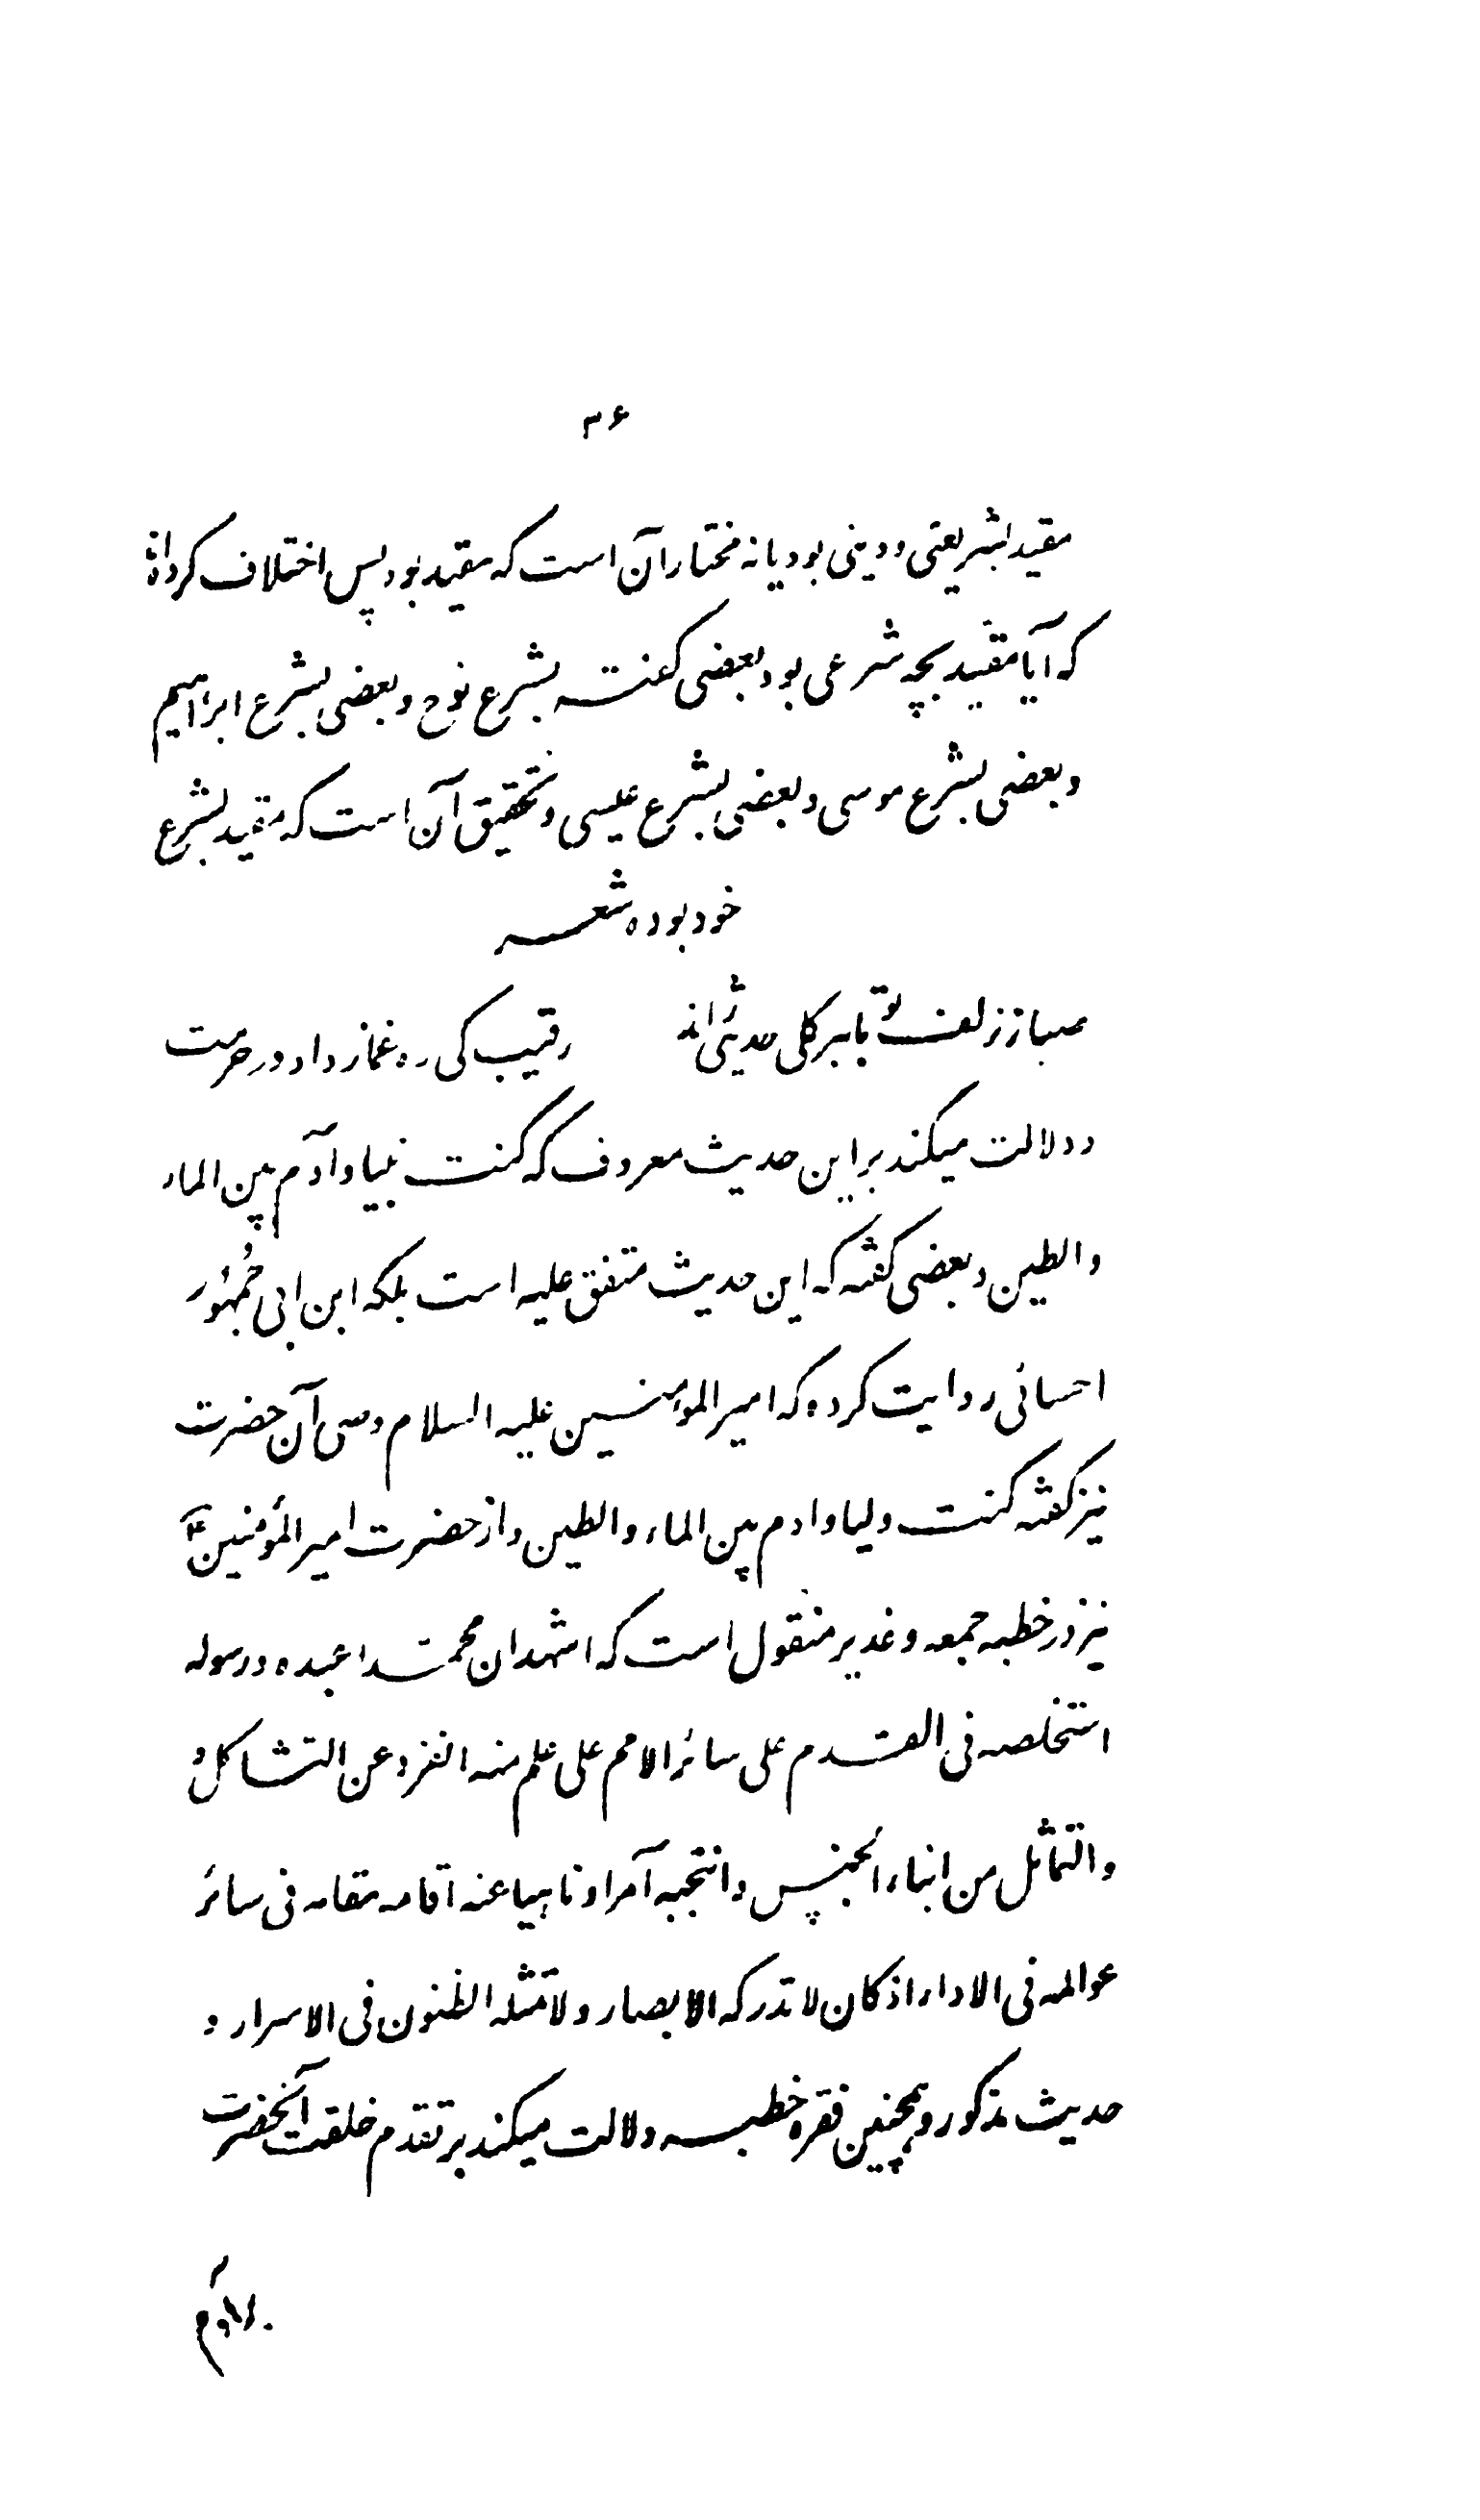 ۳۶
مقید بشریعتی و دینی بود یا نه مختار آن است که مقید بود پس اختلاف کرده‌اند
که آیا مقید بچه شرعی بود بعضی گفته بشرع نوح و بعضی بشرع ابراهیم
و بعضی بشرع موسی و بعضی بشرع عیسی و تحقیق آن است که مقید بشرع
خود بوده شعر
صبا ز زلف تو با هر گلی حدیثی راند رقیب کی ره غماز داد در حرمت
و دلالت میکند بر این حدیث معروف که کنت نبیا و آدم بین الماء
والطین و بعضی گفته که این حدیث متفق علیه است بلکه ابن ابی جمهور
احسائی روایت کرده که امیر المؤمنین علیه السلام وصی آن حضرت
نیز گفته کنت ولیا و ادم بین الماء والطین و از حضرت امیر المؤمنین ع
نیز در خطبه جمعه و غدیر منقول است که اشهد ان محمدا عبده و رسوله
استخلصه فی القدم علی سائر الامم علی علم منه انفرد عن التشاکل
والتماثل من ابناء الجنس وانتجبه آمرا وناهیا عنه اقامه مقامه فی سائر
عوالمه فی الاداء اذ کان لا تدرکه الابصار ولا تمثله الظنون فی الاسرار
حدیث مذکور و همچنین فقره خطبه دلالت میکند بر تقدم خلقت آنحضرت
بر آدم